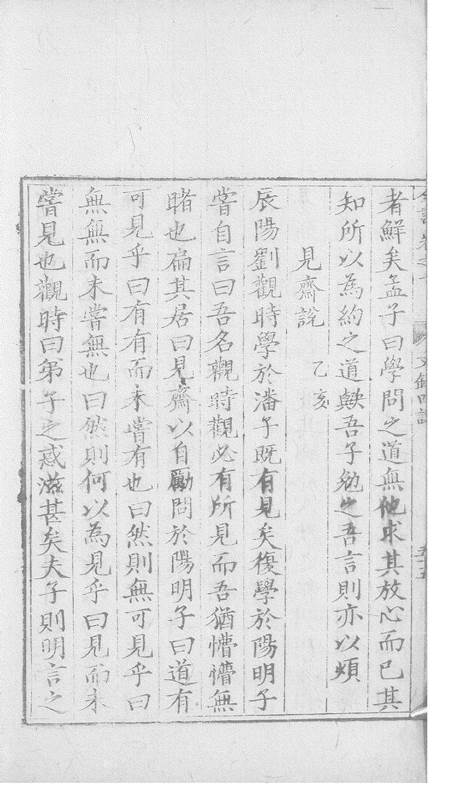 者鮮矣孟子曰學問之道無他求其放心而已其
知所以為約之道歟吾子勉之吾言則亦以煩
見齋說 乙亥
辰陽劉觀時學於潘子既有見矣復學於陽明子
嘗自言曰吾名觀時觀必有所見而吾猶懵懵無
睹也扁其居曰見齋以自勵問於陽明子曰道有
可見乎曰有有而未嘗有也曰然則無可見乎曰
無無而未嘗無也曰然則何以為見乎曰見而未
嘗見也觀時曰弟子之惑滋甚矣夫子則明言之